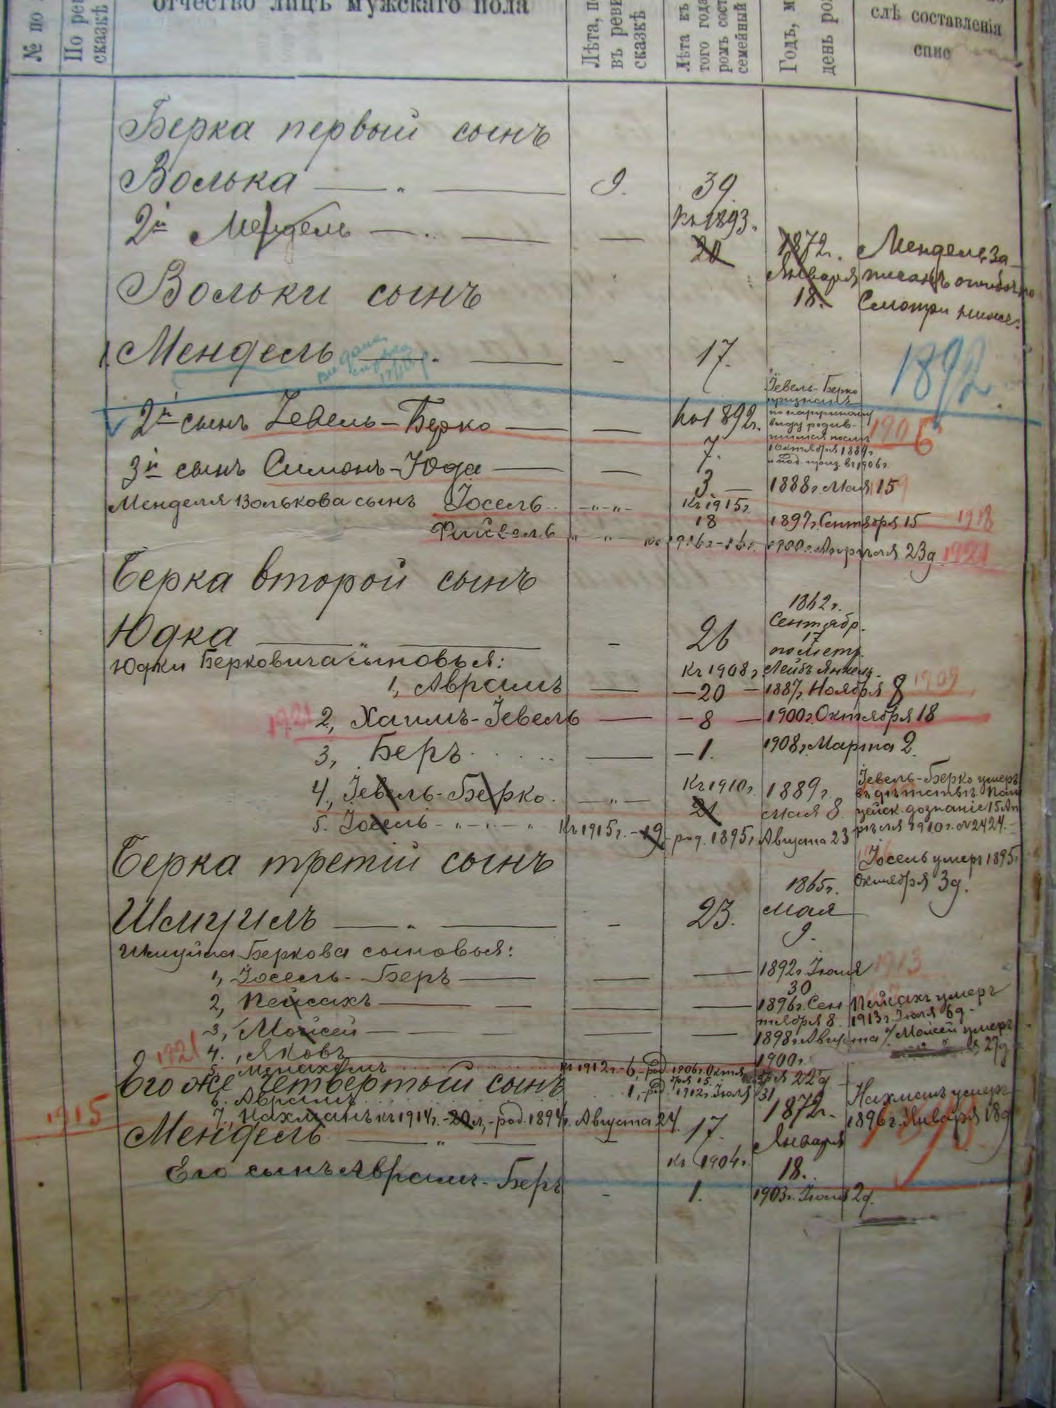 № по
По рев
сказкѣ
отчество лицъ мужскаго пола
Лѣта, п
въ реви
сказкѣ
Лѣта къ
того года
ромъ сост
семейный
Годъ, м
день ро
слѣ составленія
спис
Берка первый сынъ
Волька — " — 9. 39
Къ 1893.
2й Мендель — " — — 20 1872 г. Января 18.
Мендель за-
писанъ ошибочно
Смотри ниже.
Вольки сынъ
1. Мендель — . — - 17.
1892
2й сынъ Зевель-Берко — — на 1892 г. 7.
Зевель-Берко
признанъ
по наружному
виду родив-
шимся
1906
3й сынъ Симонъ-Юда — — 3 — 1888 г. Мая 15
Менделя Волькова сынъ Іосель -"-"- Къ 1915 г. 18 1897 г. Сентября 15 1918
Файвель " " 1916 г. - 16 г. 1900 г. Апрѣля 23 д. 1921
Берка второй сынъ
Юдка — " — - 26 1862 г. Сентябр. 17 по метр.
Юдки Берковича сыновья:
Къ 1908 г.
1, Аврамъ — — 20 — 1887 г. Ноября 8 1909
1921 2, Хаимъ-Зевель — — 8 — 1900 г. Октября 18
3, Беръ — — 1. 1908 г. Марта 2.
4, Зевель-Берко. — " — Къ 1910 г. 21 1889 г. Мая 8.
Зевель-Берко умеръ
въ дѣтствѣ Пол
цейск. дознаніе 15 Ап
рѣля 1910 г. № 2424.
5. Іосель - " - " - " Къ 1915 г. - 19, род. 1895 г. Августа 23
Іосель умеръ 1895 г.
Октября 3 д.
Берка третій сынъ
Шмуилъ — " — - 23. 1865 г. Мая 9.
Шмуйла Беркова сыновья:
1, Іосель-Беръ — — — 1892 г. Іюля 30 1913
2, Пейсахъ — — — 1896 г. Сен
тября 8.
Пейсахъ умеръ
1913 г. Іюля 6 д.
3, Мойсей — — — 1898 г. Августа
Мойсей умеръ
27 д
1921 4., Яковъ 1900 г.
5. Менахемъ Къ 1912 г. - 6, род. 1906 г. Октя
Его же четвертый сынъ
6. Аврамъ 1, род. 1912 г. Іюля 31
1915 7, Нахманъ къ 1914 г. - 20 л, - род. 1894 г. Августа 24.
Нахманъ умеръ
1896 г. Января 18 д
Мендель — " — 17. 1872 г. Января 18.
Къ 1904 г.
Его сынъ Аврамъ-Беръ - 1. 1903 г. Іюля 2 д.